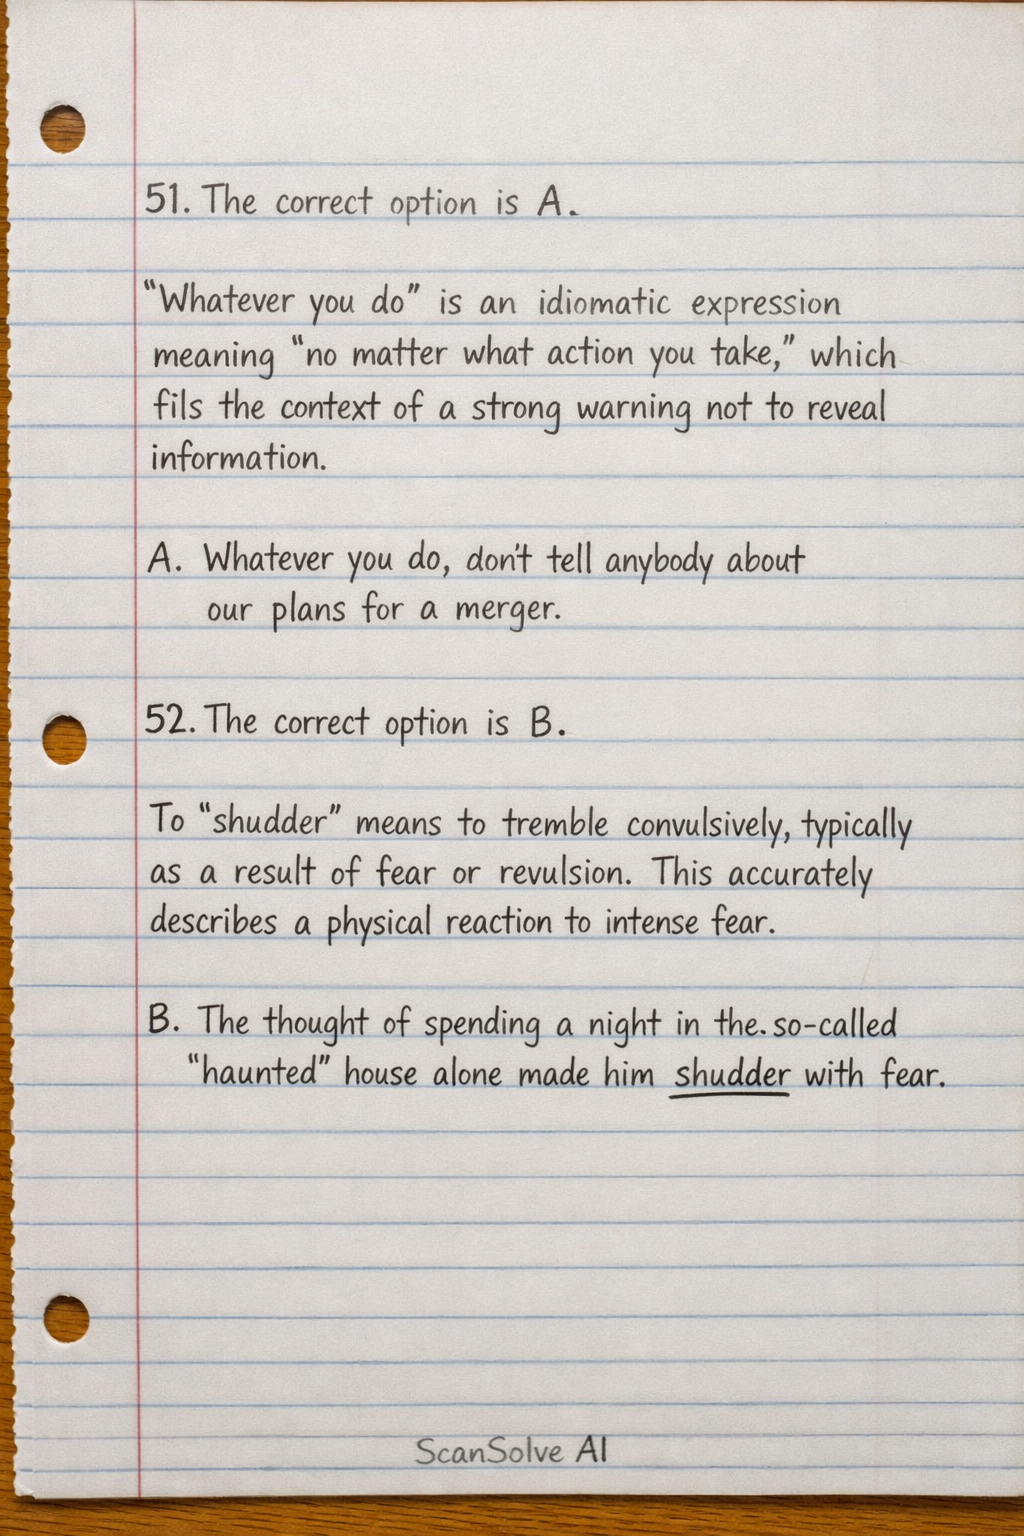 51. The correct option is A.
“Whatever you do” is an idiomatic expression
meaning “no matter what action you take,” which
fils the context of a strong warning not to reveal
information.
A. Whatever you do, don't tell anybody about
our plans for a merger.
52. The correct option is B.
To “shudder” means to tremble convulsively, typically
as a result of fear or revulsion. This accurately
describes a physical reaction to intense fear.
B. The thought of spending a night in the. so-called
“haunted” house alone made him shudder with fear.
ScanSolve AI